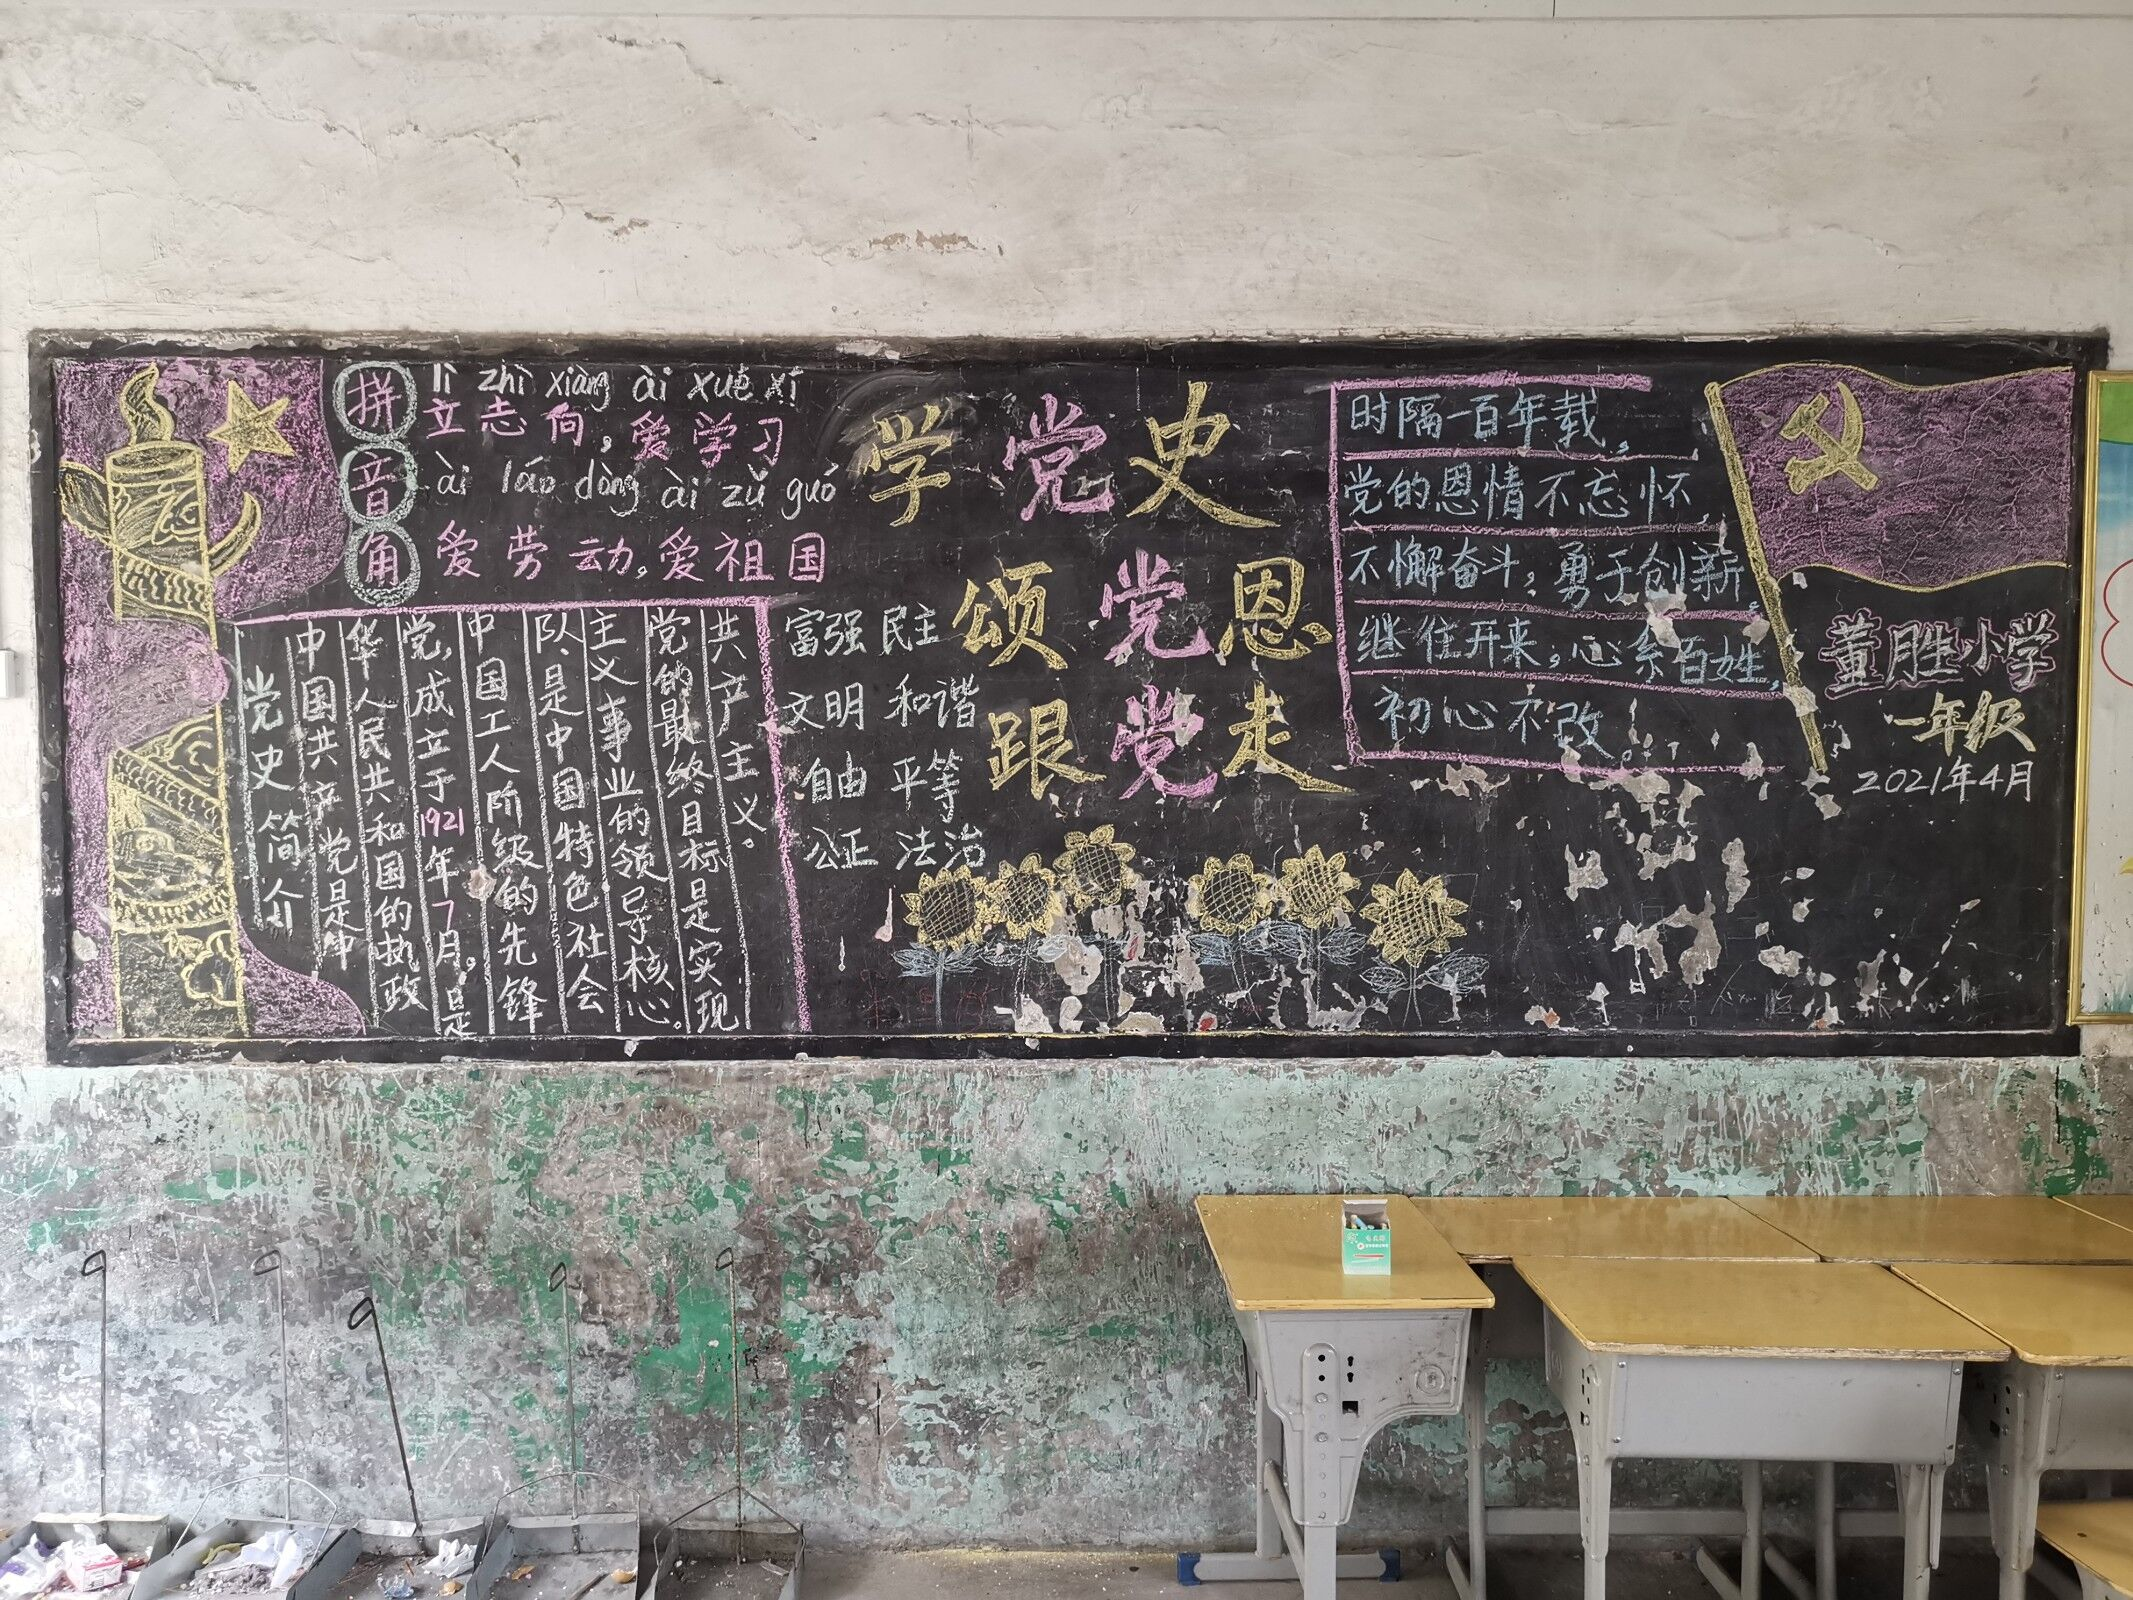 拼音角
lì zhì xiàng ài xué xí
立志向,爱学习
ài láo dòng ài zǔ guó
爱劳动,爱祖国
党史简介
中国共产党是中
华人民共和国的执政
党,成立于1921年7月。是
中国工人阶级的先锋
队、是中国特色社会
主义事业的领导核心。
党的最终目标是实现
共产主义。
富强 民主
文明 和谐
自由 平等
公正 法治
学党史
颂党恩
跟党走
时隔一百年载,
党的恩情不忘怀,
不懈奋斗,勇于创新。
继往开来,心系百姓,
初心不改。
董胜小学
一年级
2021年4月